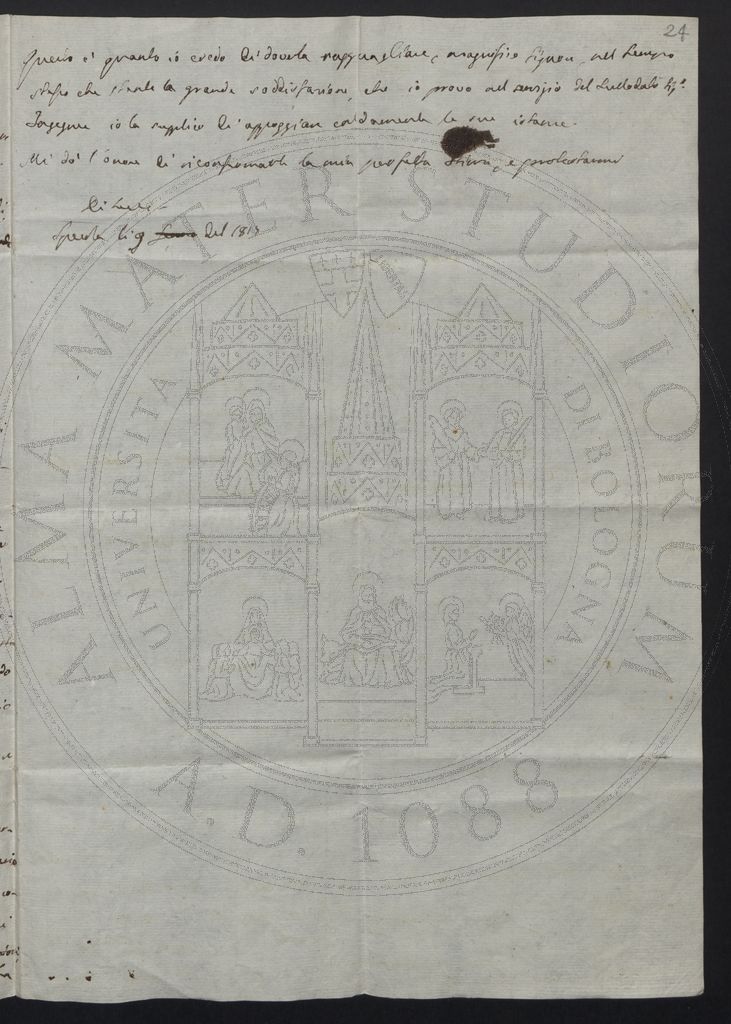 24
Questo è quanto io credo di doverla ragguagliare, magnifico Signore, nel tempo
stesso che stante la grande soddisfazione, che io provo nel servizio del sullodato Sig.
Ingegne io la supplico di appoggiare caldamente le sue istanze.
Mi dò l'onore di riconfermarle la mia perfetta stima, e protestarmi
Di Lei
Specola li 9 del 181
ALMA MATER STUDIORUM
UNIVERSITA DI BOLOGNA
A.D. 1088